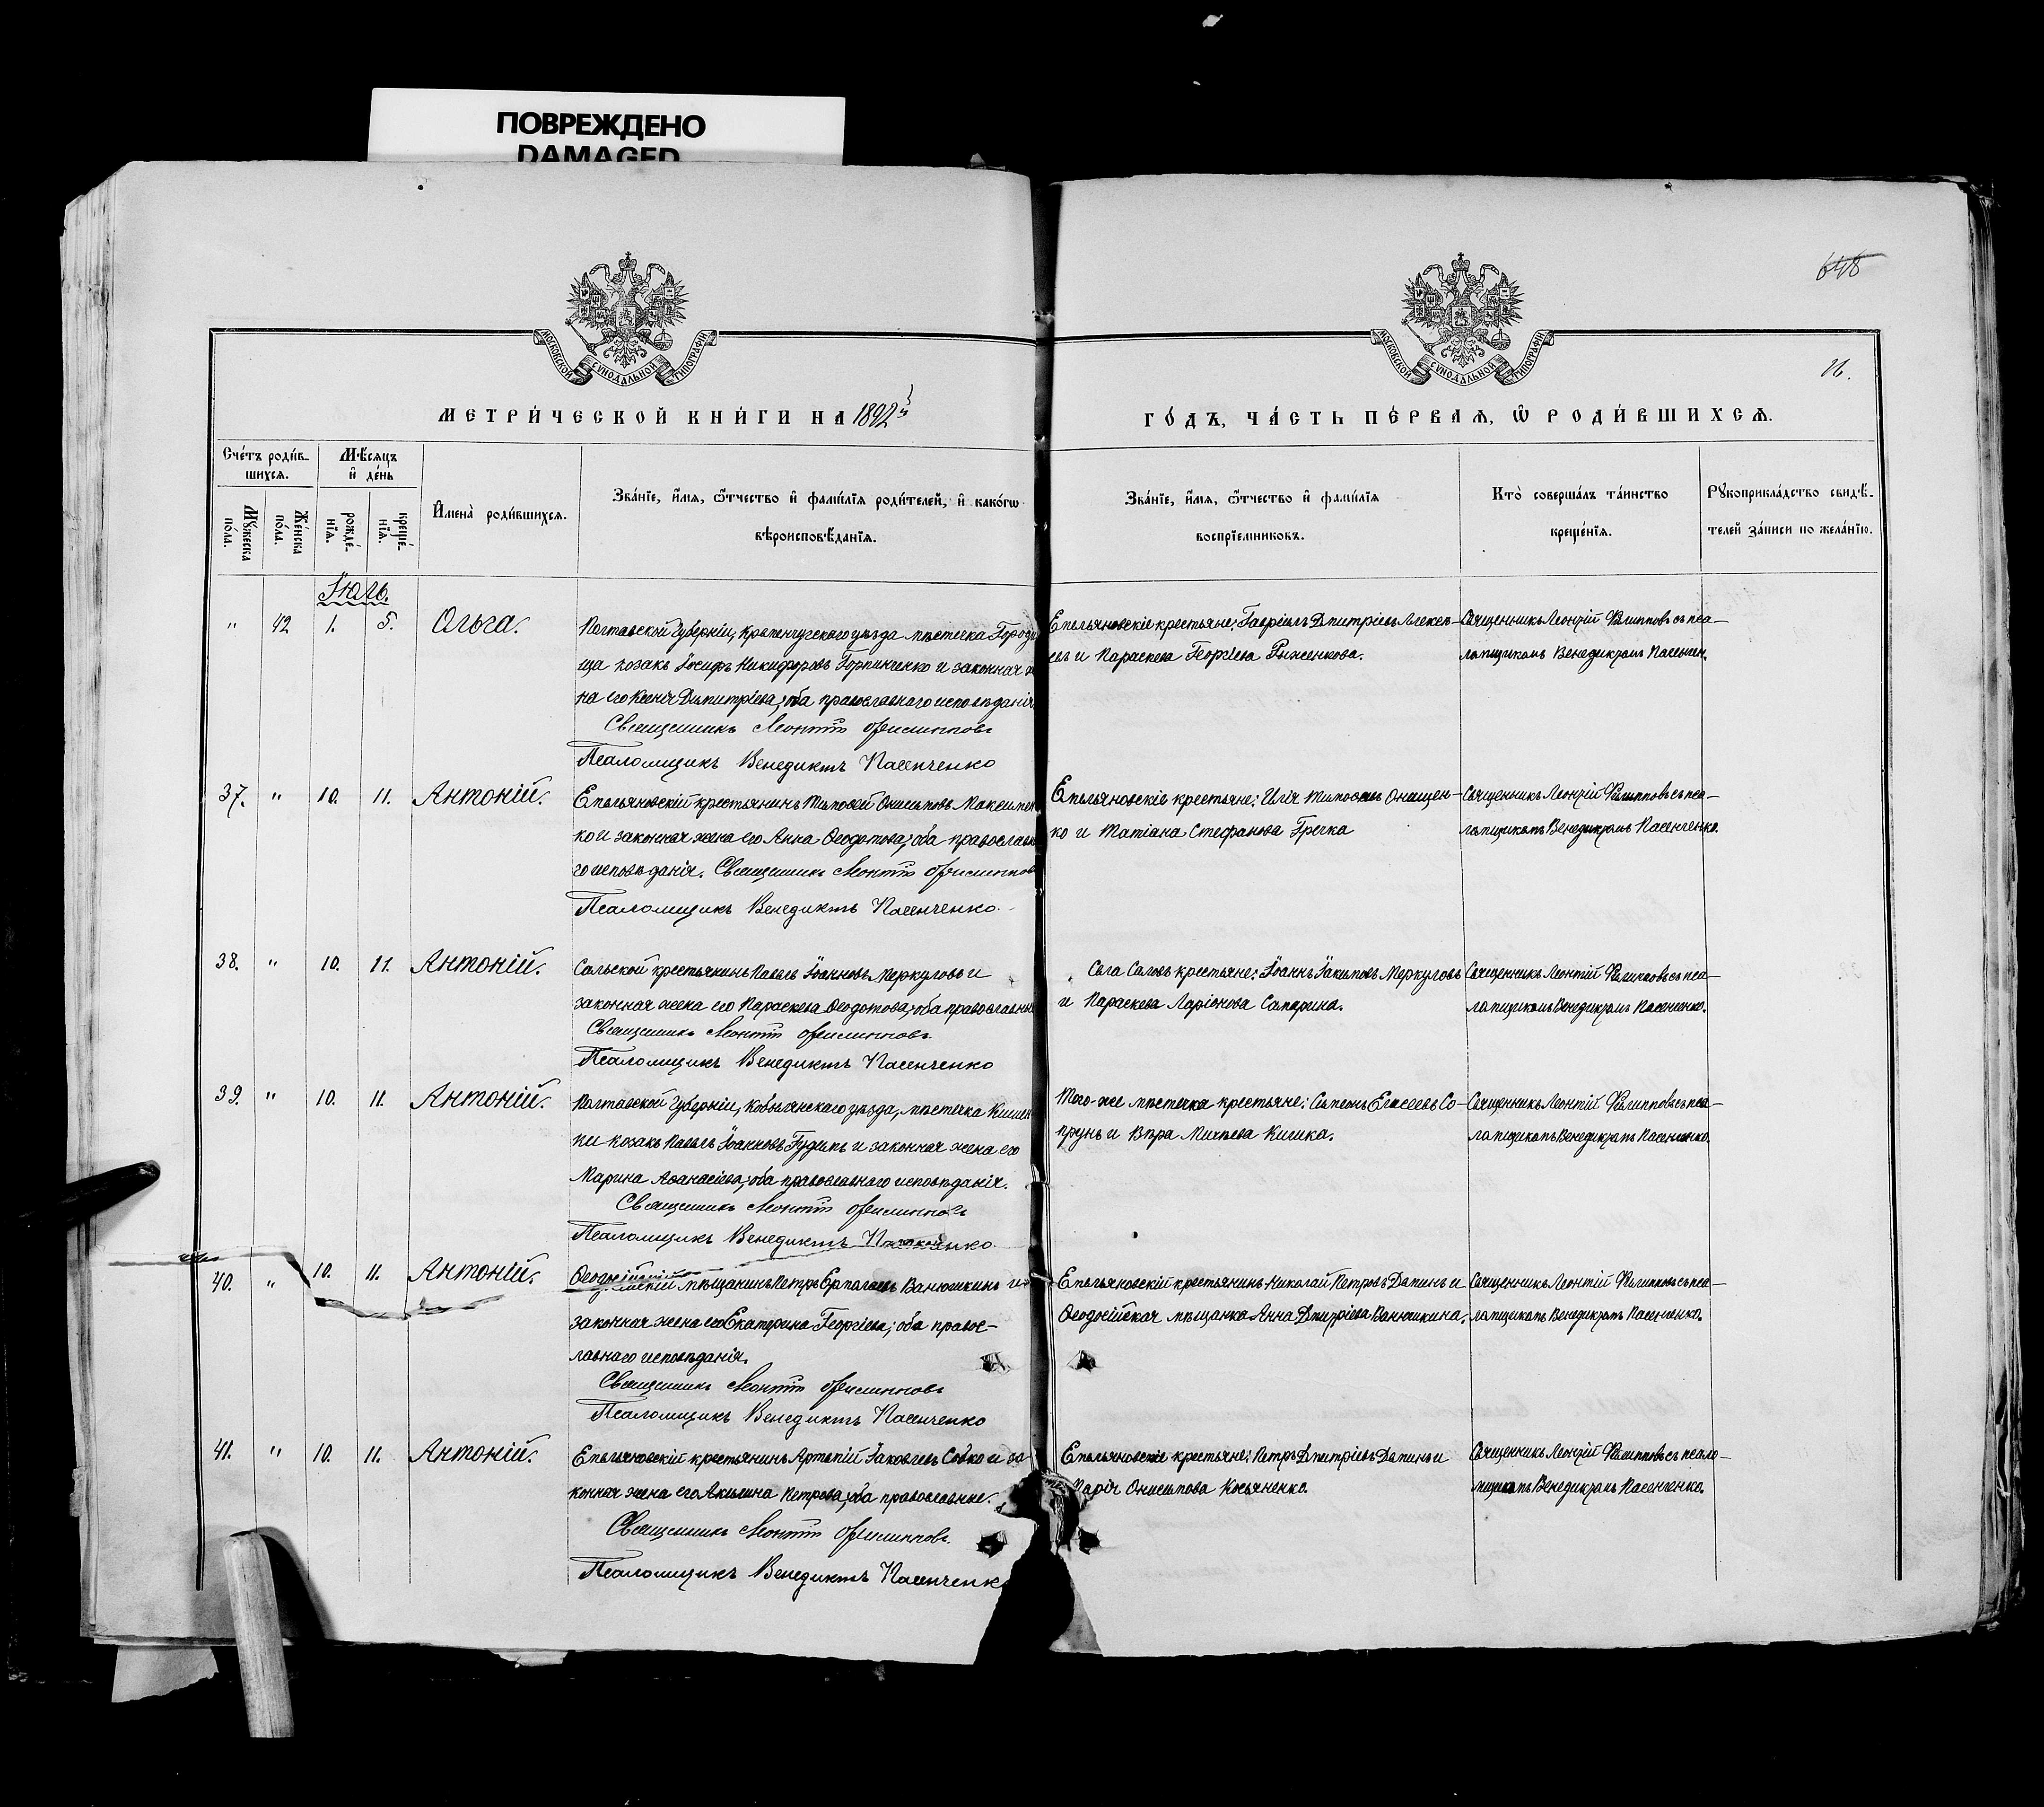 ПОВРЕЖДЕНО
DAMAGED
648
26.
МОСКОВСКОЙ СѴНОДАЛЬНОЙ ТИПОГРАФІИ
МОСКОВСКОЙ СѴНОДАЛЬНОЙ ТИПОГРАФІИ
МЕТРИ́ЧЕСКОЙ КНИ́ГИ НА 1892й
ГО́ДЪ, ЧА́СТЬ ПЕ́РВАѦ, Ѡ РОДИ́ВШИХСѦ.
Сче́тъ роди́в-
шихсѧ.
Мѣ́сѧцъ
и҆ де́нь
Мꙋ́жеска
по́ла.
Же́нска
по́ла.
рожде́-
нїѧ.
креще́-
нїѧ.
И҆мена̀ роди́вшихсѧ.
Зва́нїе, и҆́мѧ, ѻ҆́тчество и҆ фами́лїѧ роди́телей, и҆ како́гѡ
вѣроисповѣ́данїѧ.
Зва́нїе, и҆́мѧ, ѻ҆́тчество и҆ фами́лїѧ
воспрїе́мниковъ.
Кто̀ соверша́лъ та́инство
креще́нїѧ.
Рꙋкоприкла́дство свидѣ́-
телей за́писи по жела́нїю.
Іюль.
" 42 1. 5. Ольга.
Полтавской Губерніи, Кременчугского уѣзда мѣстечка Городи
ща козакъ Іосифъ Никифоровъ Горпинченко и законная же
на его Ксенія Димитріева, оба православнаго исповѣданія
Священникъ Леонтій Филипповъ
Псаломщикъ Венедиктъ Пасенченко
Емельяновскіе крестьяне: Гавріилъ Дмитріевъ Алексе-
евъ и Параскева Георгіева Рыженкова.
Священникъ Леонтій Филипповъ съ пса-
ломщикомъ Венедиктомъ Пасенчен.
37. " 10. 11. Антоній.
Емельяновскій крестьянинъ Тимофей Онисимовъ Максимен
ко и законная жена его Анна Ѳеодотова, оба православна
го исповѣданія. Священникъ Леонтій Филиппов
Псаломщикъ Венедиктъ Пасенченко.
Емельяновскіе крестьяне: Илія Тимофеевъ Онищен-
ко и Татіана Стефанова Гречка
Священникъ Леонтій Филипповъ съ пса-
ломщикомъ Венедиктомъ Пасенченко.
38. " 10. 11. Антоній.
Сальской крестьянинъ Павелъ Іоанновъ Меркуловъ и
законная жена его Параскева Ѳеодотова, оба православны
Священникъ Леонтій Филипповъ.
Псаломщикъ Венедиктъ Пасенченко
Села Саловъ крестьяне: Іоаннъ Іакимовъ Меркуловъ
и Параскева Ларіонова Сапарина.
Священникъ Леонтій Филипповъ съ пса-
ломщикомъ Венедиктомъ Пасенченко.
39. " 10. 11. Антоній.
Полтавской Губерніи, Кобылянскаго уѣзда, мѣстечка Кишен
ки козакъ Павелъ Іоанновъ Гудимъ и законная жена его
Марина Аѳанасіева, оба православнаго исповѣданія.
Священникъ Леонтій Филипповъ
Псаломщикъ Венедиктъ Пасенченко.
Того-же мѣстечка крестьяне: Симеонъ Елисеевъ Со-
прунъ и Вѣра Михѣева Кишка.
Священникъ Леонтій Филипповъ съ пса-
ломщикомъ Венедиктомъ Пасенченко.
40. " 10. 11. Антоній.
Ѳеодосійскій мѣщанинъ Петръ Ермолаевъ Ванюшкинъ и
законная жена его Екатерина Георгіева; оба правос-
лавнаго исповѣданія.
Священникъ Леонтій Филипповъ
Псаломщикъ Венедиктъ Пасенченко
Емельяновскій крестьянинъ Николай Петровъ Даминъ и
Ѳеодосійская мѣщанка Анна Дмитріева Ванюшкина.
Священникъ Леонтій Филипповъ съ пса-
ломщикомъ Венедиктомъ Пасенченко.
41. " 10. 11. Антоній.
Емельяновскій крестьянинъ Артемій Іаковлевъ Собко и за-
конная жена его Акилина Петрова, оба православные.
Священникъ Леонтій Филипповъ.
Псаломщикъ Венедиктъ Пасенченк
Емельяновскіе крестьяне: Петръ Дмитріевъ Даминъ и
Марія Онисимова Косьяненко.
Священникъ Леонтій Филипповъ съ псало-
мщикомъ Венедиктомъ Пасенченко.